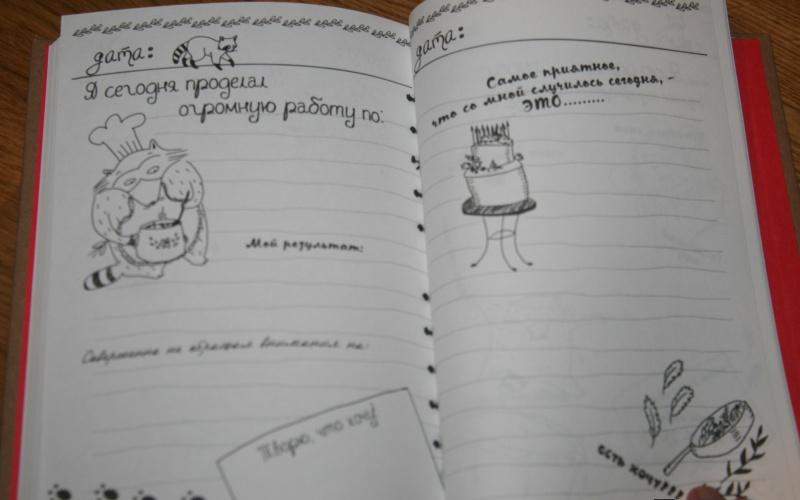 дата:
Я сегодня проделал
огромную работу по:
Мой результат:
Совершенно не обращал внимания на:
Творю, что хочу
дата:
Самое приятное,
что со мной случилось сегодня, -
ЭТО.........
ЕСТЬ ХОЧУ???